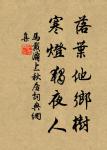 落葉他鄉樹
寒燈獨夜人
馬戴灞上秋居詞典網
集